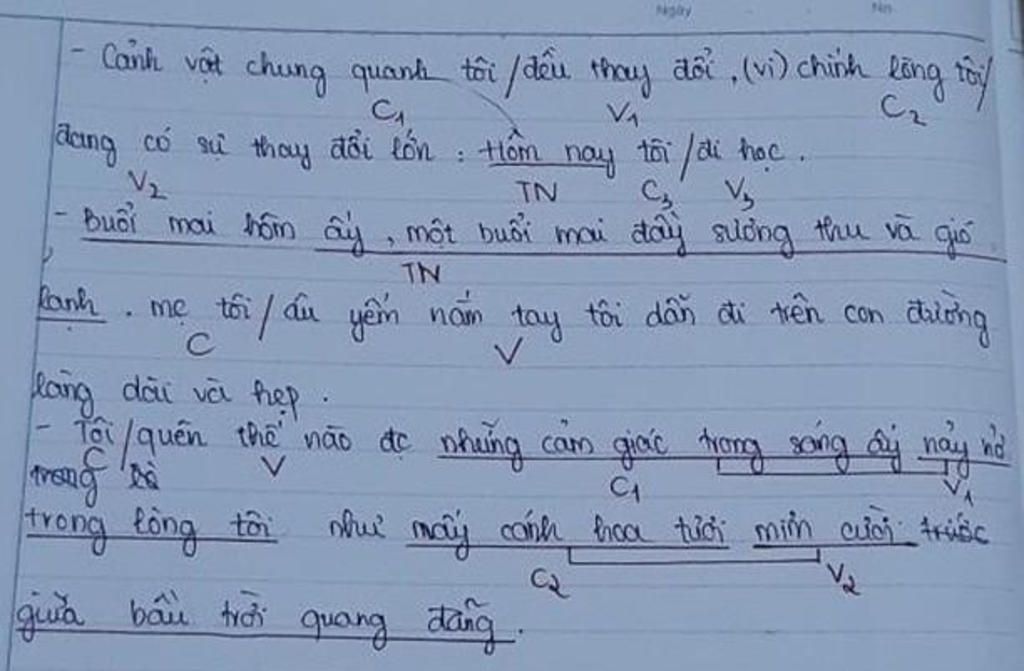 Ngày No
- Cảnh vật chung quanh tôi / đều thay đổi, (vì) chính lòng tôi /
C₁ V₁ C₂
đang có sự thay đổi lớn : Hôm nay tôi / đi học.
V₂ TN C₃ V₃
- Buổi mai hôm ấy, một buổi mai đầy sương thu và gió
TN
lạnh. mẹ tôi / âu yếm nắm tay tôi dẫn đi trên con đường
C V
làng dài và hẹp.
- Tôi / quên thế nào đc những cảm giác trong sáng ấy nảy nở
C V C₁ V₁
trong lò
trong lòng tôi như mấy cánh hoa tươi mỉm cười trước
C₂ V₂
giữa bầu trời quang đãng.